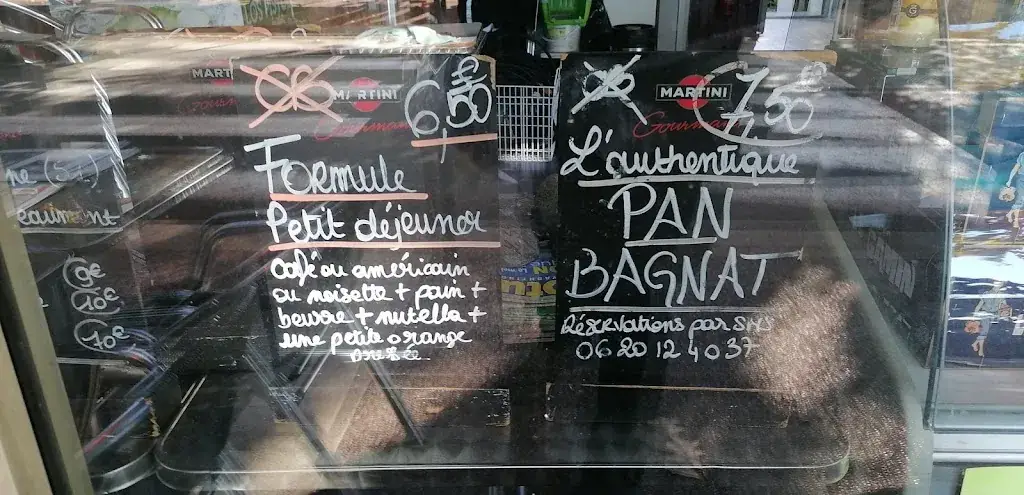 MARTINI
6,50
Formule
Petit déjeuner
Café ou américain
ou noisette + pain +
beurre + nutella +
une petite orange
pressée
MARTINI
Gourmand
7,50
L'authentique
PAN
BAGNAT
Réservations par SMS
06 20 12 40 37
MART
ne (5
eaumont
9€
10€
10€